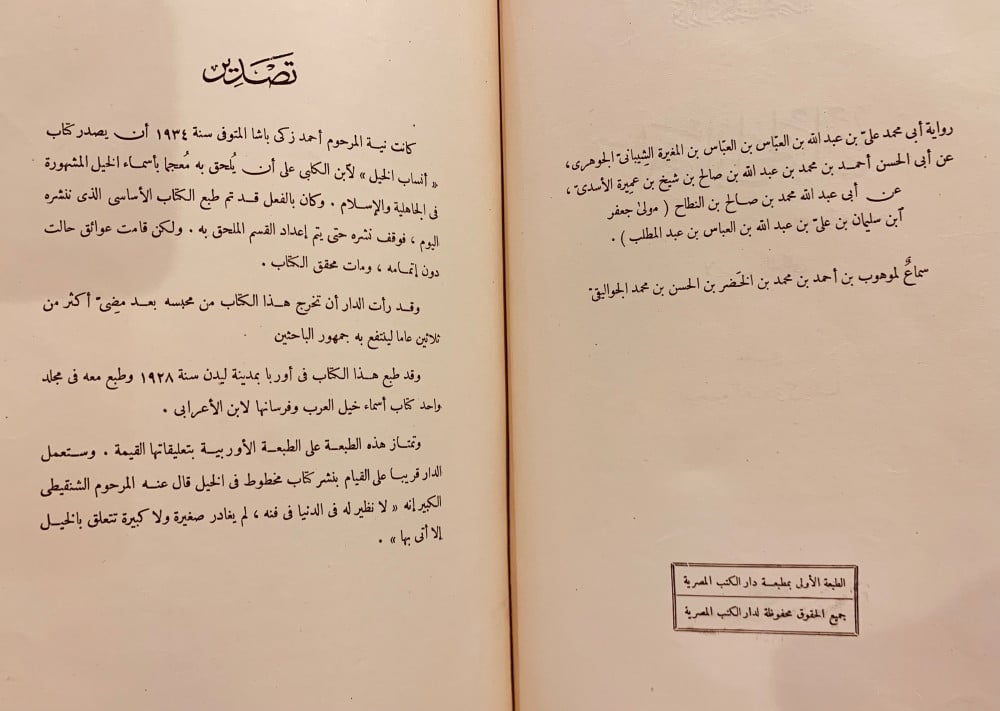 رواية أبى محمد علىّ بن عبد الله بن العبّاس بن العبّاس بن المغيرة الشيبانىّ الجوهرى،
عن أبى الحسن أحمد بن محمد بن عبد الله بن صالح بن شيخ بن عميرة الأسدىّ،
عن أبى عبد الله محمد بن صالح بن النطاح ( مولى جعفر
ٱبن سليمان بن علىّ بن عبد الله بن العباس بن عبد المطلب ) .
سماعٌ لموهوب بن أحمد بن محمد بن الخَضر بن الحسن بن محمد الجواليقىّ
الطبعة الأولى بمطبعة دار الكتب المصرية
جميع الحقوق محفوظة لدار الكتب المصرية
تصدير
كانت نية المرحوم أحمد زكى باشا المتوفى سنة ١٩٣٤ أن يصدر كتاب
« أنساب الخيل » لٱبن الكلبى على أن يُلحق به مُعجما بأسماء الخيل المشهورة
فى الجاهلية والإسلام . وكان بالفعل قد تم طبع الكتاب الأساسى الذى ننشره
اليوم ، فوقف نشره حتى يتم إعداد القسم الملحق به . ولكن قامت عوائق حالت
دون إتمامه ، ومات محقق الكتاب .
وقد رأت الدار أن تخرج هذا الكتاب من محبسه بعد مضىّ أكثر من
ثلاثين عاما لينتفع به جمهور الباحثين
وقد طبع هذا الكتاب فى أوربا بمدينة ليدن سنة ١٩٢٨ وطبع معه فى مجلد
واحد كتاب أسماء خيل العرب وفرسانها لابن الأعرابى .
وتمتاز هذه الطبعة على الطبعة الأوربية بتعليقاتها القيمة . وستعمل
الدار قريبا على القيام بنشر كتاب مخطوط فى الخيل قال عنه المرحوم الشنقيطى
الكبير إنه « لا نظير له فى الدنيا فى فنه ، لم يغادر صغيرة ولا كبيرة تتعلق بالخيل
إلا أتى بها » .